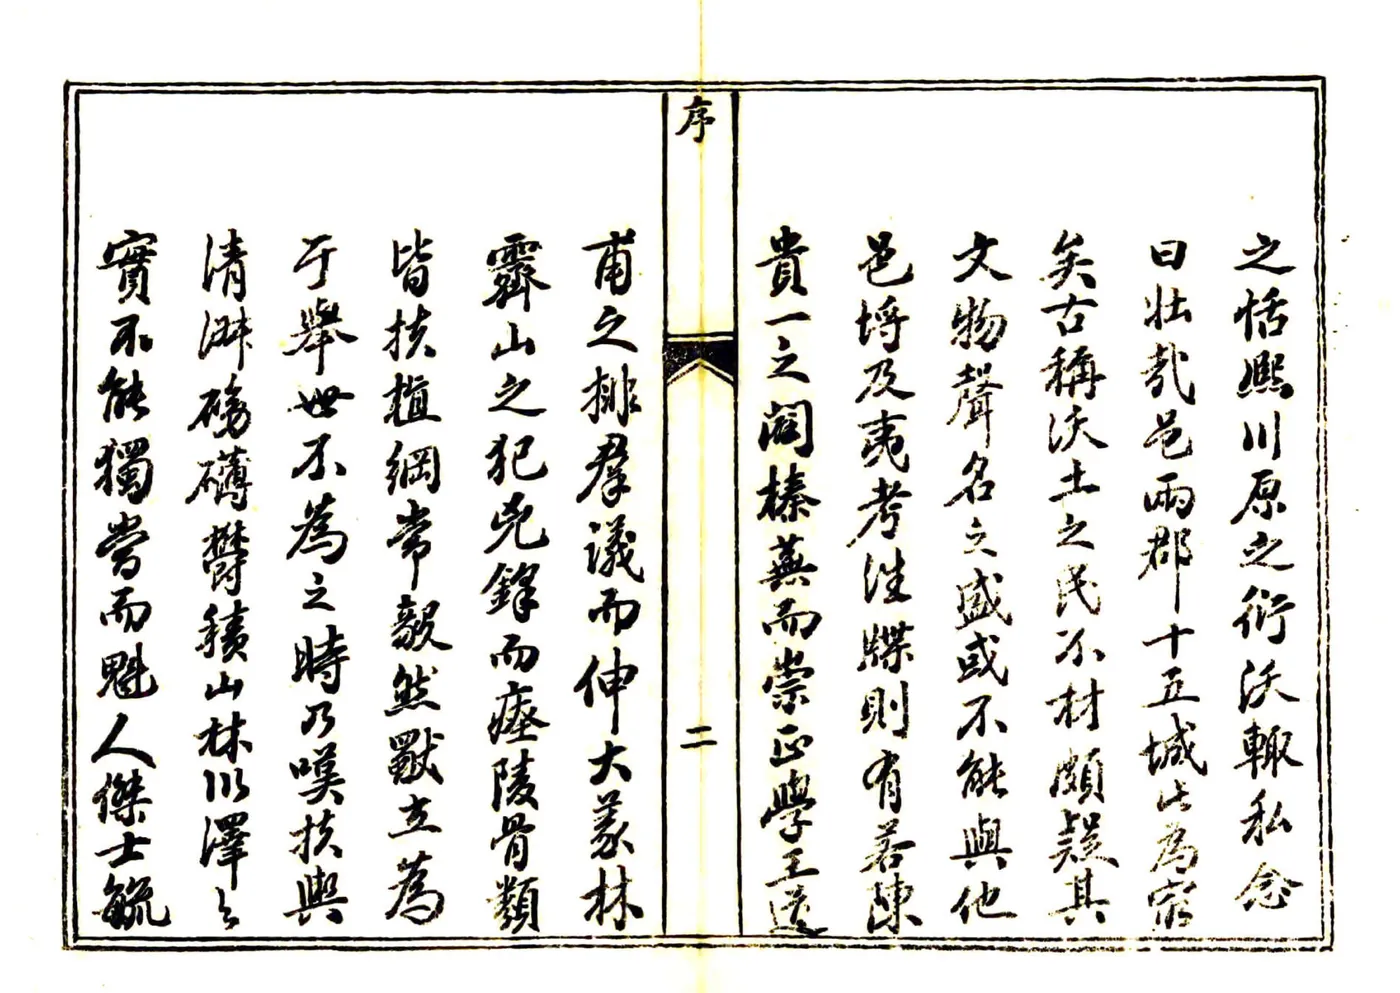 之恬熙川原之衍沃輙私念
曰壯哉邑兩郡十五城此為最
矣古稱沃土之民不材頗疑其
文物聲名之盛或不能與他
邑埒及夷考往牒則有若陳
貴一之闢榛蕪而崇正學王道
甫之排羣議而伸大義林
霽山之犯兇鋒而瘞陵骨類
皆扶植綱常毅然獸立為
于舉世不為之時乃嘆扶輿
清淑磅礴欝積山林川澤之
實不能獨嘗而魁人傑士毓
序
二